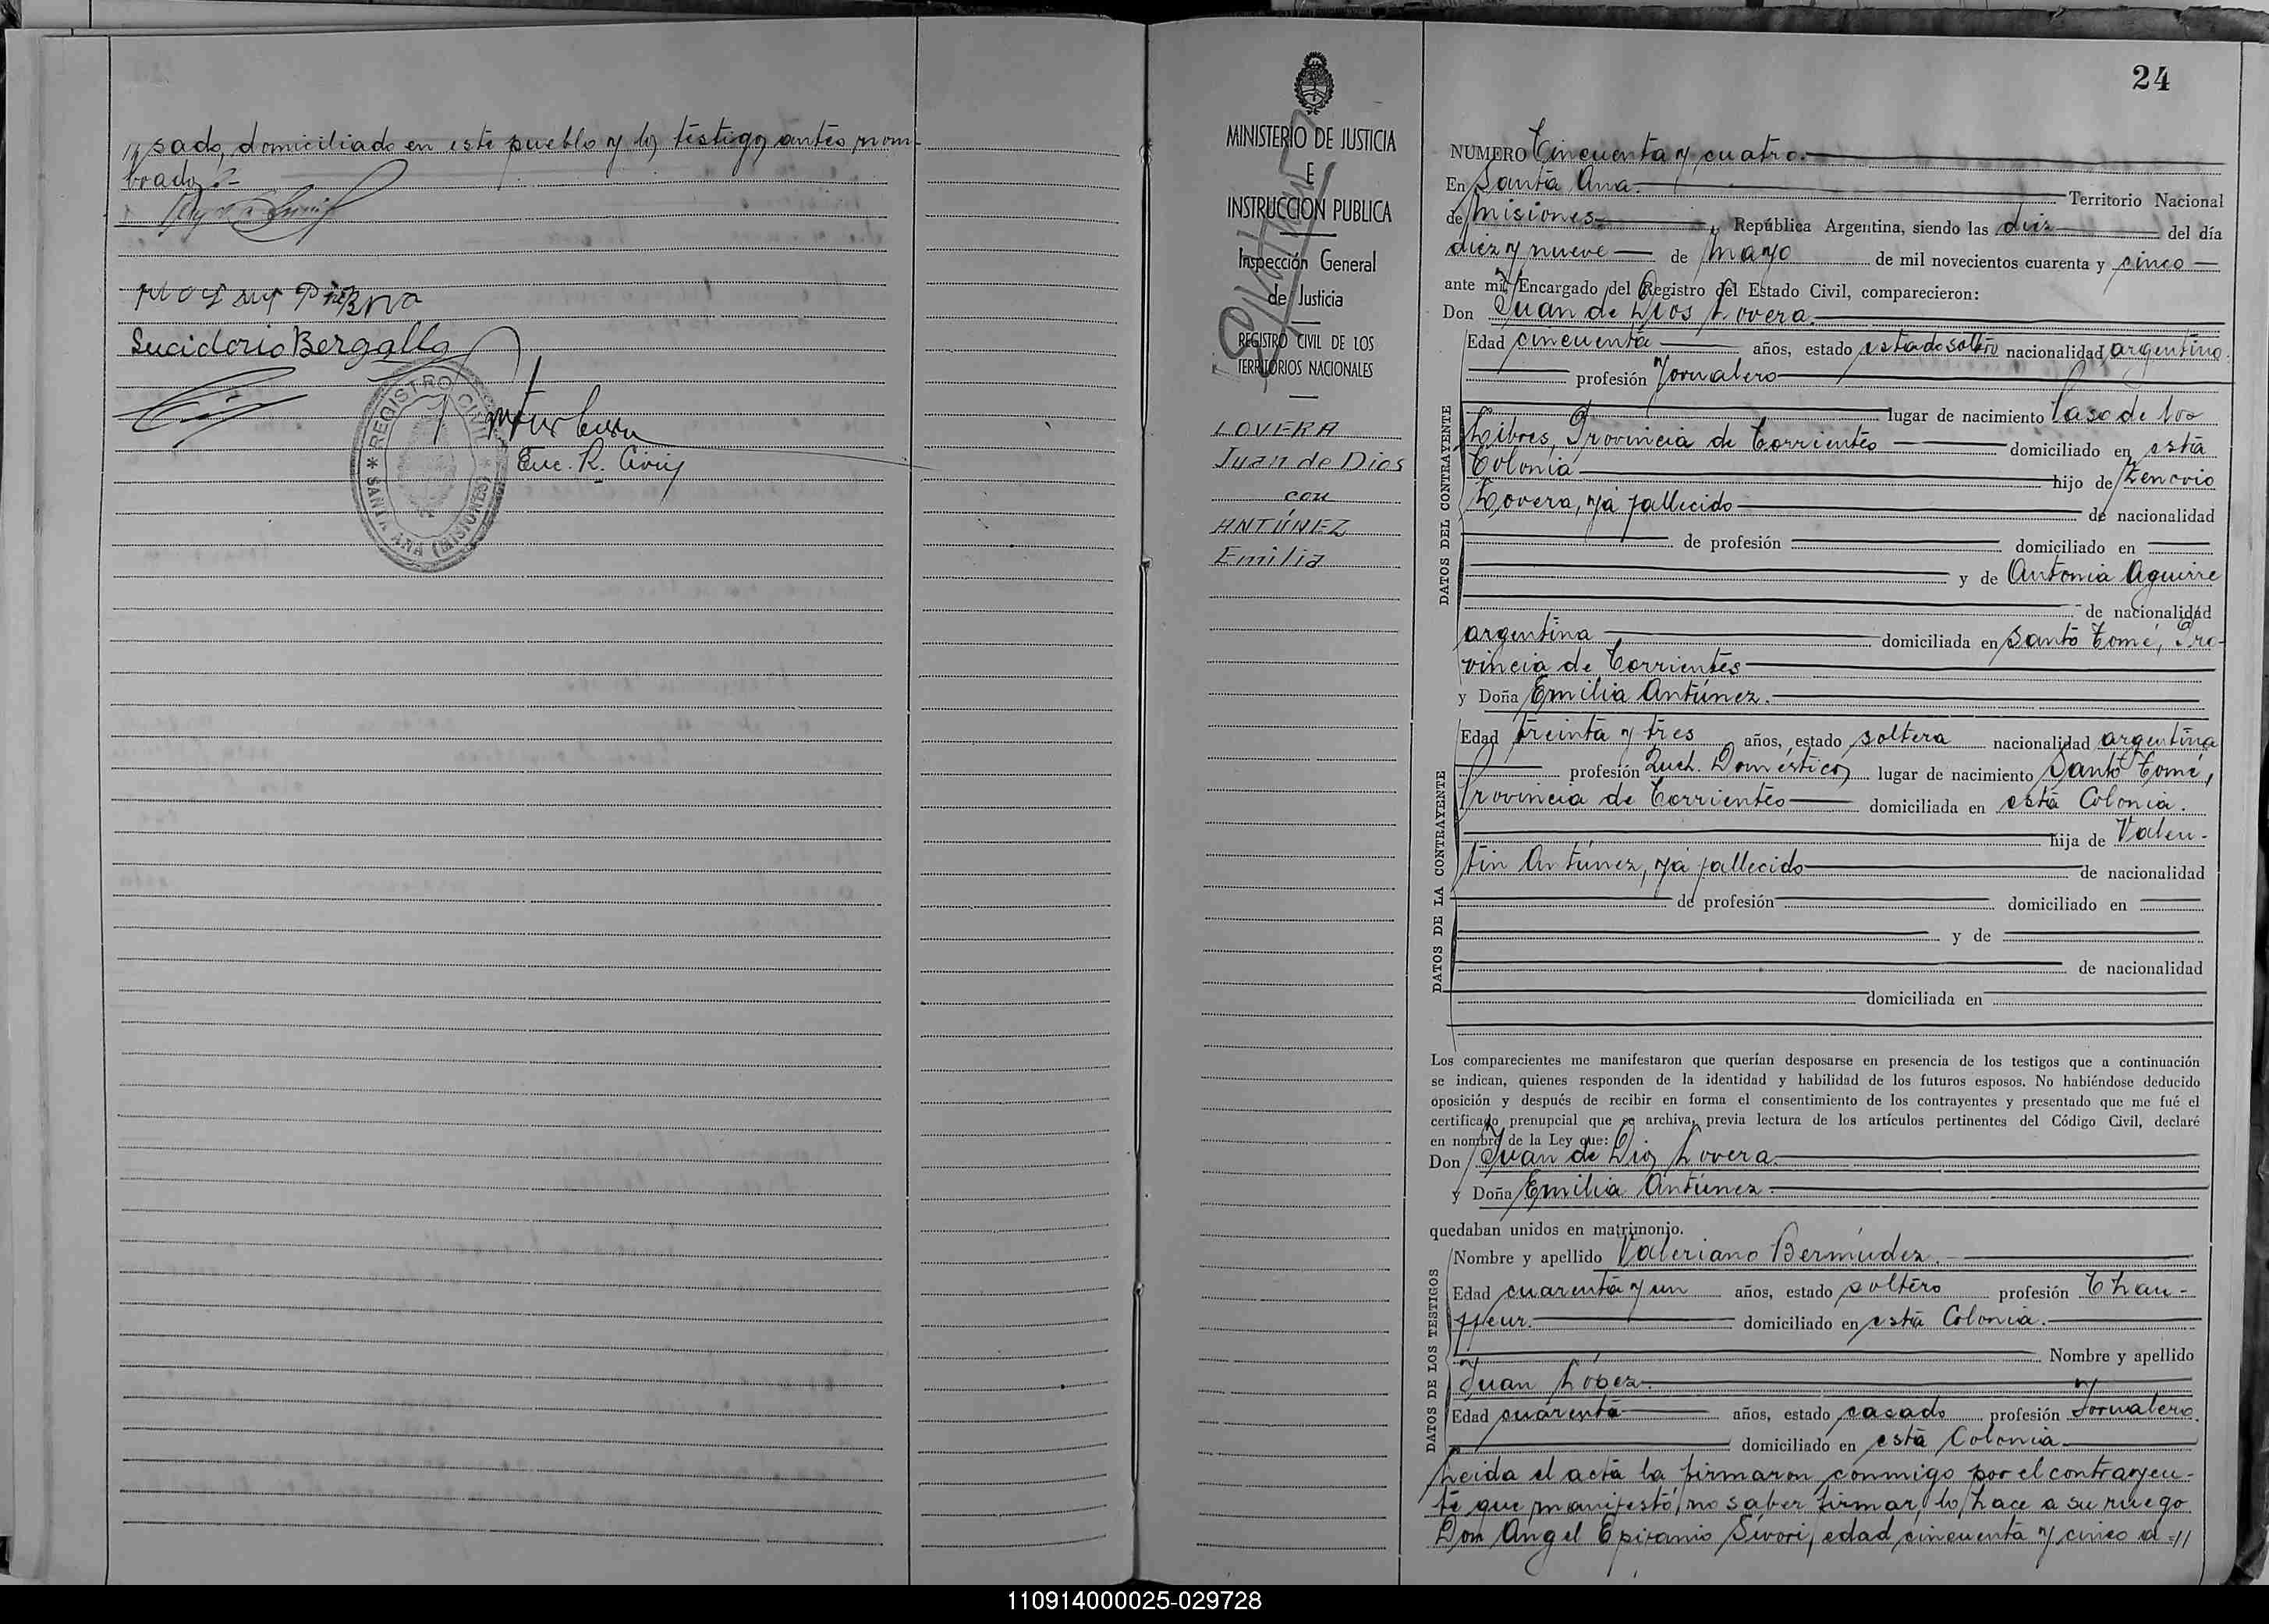 // sado, domiciliado en este pueblo y los testigos antes nom-
brados.-
Sucidorio Bergallo
Enc. R. Civil
REGISTRO CIVIL
SANTA ANA (MISIONES)
24
MINISTERIO DE JUSTICIA
E
INSTRUCCION PUBLICA
Inspección General
de Justicia
REGISTRO CIVIL DE LOS
TERRITORIOS NACIONALES
LOVERA
Juan de Dios
con
ANTÚNEZ
Emilia
NUMERO Cincuenta y cuatro.
En Santa Ana. Territorio Nacional
de Misiones República Argentina, siendo las diez del día
diez y nueve de Mayo de mil novecientos cuarenta y cinco
ante mí, Encargado del Registro del Estado Civil, comparecieron:
Don Juan de Dios Lovera.
Edad cincuenta años, estado estado soltero nacionalidad argentino.
profesión Jornalero
lugar de nacimiento Paso de los
Libres, Provincia de Corrientes domiciliado en esta
Colonia hijo de Zenovio
Lovera, ya fallecido de nacionalidad
de profesión domiciliado en
y de Antonia Aguirre
de nacionalidad
argentina domiciliada en Santo Tomé, Pro-
vincia de Corrientes
y Doña Emilia Antúnez.
Edad treinta y tres años, estado soltera nacionalidad argentina
profesión Queh. Domésticos lugar de nacimiento Santo Tomé,
Provincia de Corrientes domiciliada en esta Colonia.
hija de Valen-
tin Antúnez, ya fallecido de nacionalidad
de profesión domiciliado en
y de
de nacionalidad
domiciliada en
DATOS DEL CONTRAYENTE
DATOS DE LA CONTRAYENTE
Los comparecientes me manifestaron que querían desposarse en presencia de los testigos que a continuación
se indican, quienes responden de la identidad y habilidad de los futuros esposos. No habiéndose deducido
oposición y después de recibir en forma el consentimiento de los contrayentes y presentado que me fué el
certificado prenupcial que se archiva, previa lectura de los artículos pertinentes del Código Civil, declaré
en nombre de la Ley que:
Don Juan de Dios Lovera.
y Doña Emilia Antúnez.
quedaban unidos en matrimonio.
Nombre y apellido Valeriano Bermúdez.
Edad cuarenta y un años, estado soltero profesión Chau-
ffeur. domiciliado en esta Colonia.
Nombre y apellido
Juan López.
Edad cuarenta años, estado casado profesión Jornalero.
domiciliado en esta Colonia
DATOS DE LOS TESTIGOS
Leida el acta la firmaron conmigo por el contrayen-
te que manifestó no saber firmar, lo hace a su ruego
Don Angel Epifanio Sívori, edad cincuenta y cinco a=//
110914000025-029728